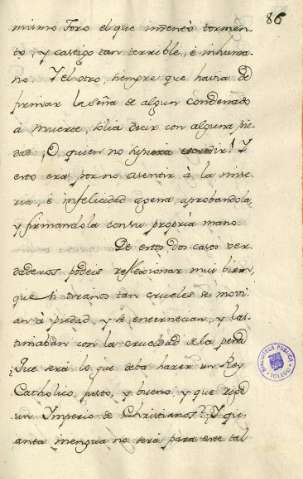 86
mismo Toro el que inventó tormen-
to, y castigo tan terrible, è inhuma-
no. Y el otro, siempre que havia de
firmar la seña de algun condenado
à muerte, solia decir con alguna pie-
dad, O quien no supiera escrivir! Y
esto era por no asentir à la mise-
ria, è infelicidad agena aprobandola,
y firmandola con su propria mano
De estos dos casos ver-
daderos podeis reflexionar mui bien,
que si tiranos tan crueles se movi-
an à piedad, y se enternecian, y las-
timaban con la crueldad de la pena
Que será lo que deba hacer un Rey
Catholico, justo, y bueno, y que rige
un Imperio de Christianos? Y que
tanta mengua no será para este tal
BIBLIOTECA PUBLICA
TOLEDO